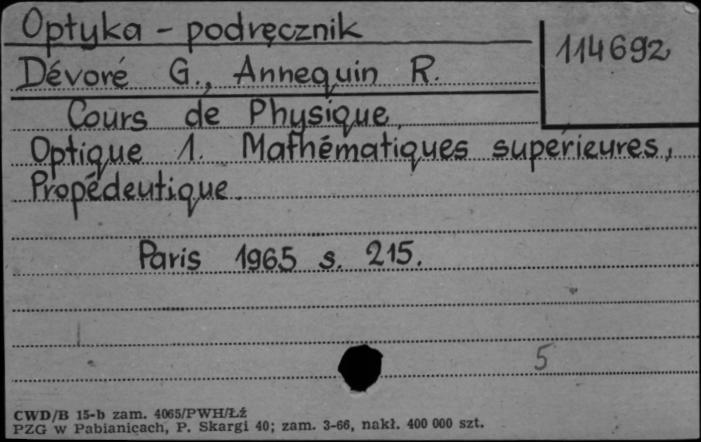 Optyka - podręcznik
114692
Dévoré G., Annequin R.
Cours de Physique.
Optique 1. Mathématiques supérieures,
Propédeutique.
Paris 1965 s. 215.
5
CWD/B 15-b zam. 4065/PWH/Łź
PZG w Pabianicach, P. Skargi 40; zam. 3-66, nakł. 400 000 szt.